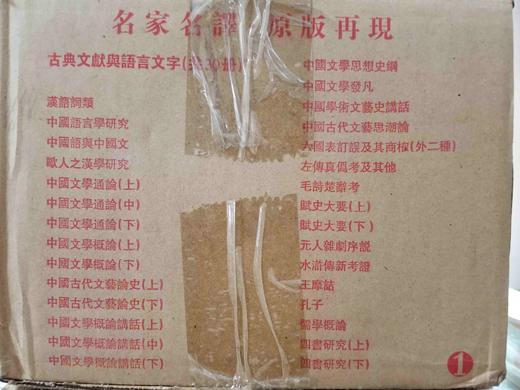 名家名譯 原版再現
古典文獻與語言文字(共30册)
漢語詞類
中國語言學研究
中國語與中國文
歐人之漢學研究
中國文學通論(上)
中國文學通論(中)
中國文學通論(下)
中國文學概論(上)
中國文學概論(下)
中國古代文藝論史(上)
中國古代文藝論史(下)
中國文學概論講話(上)
中國文學概論講話(中)
中國文學概論講話(下)
中國文學思想史綱
中國文學發凡
中國學術文藝史講話
中國古代文藝思潮論
六國表訂誤及其商榷(外二種)
左傳真僞考及其他
毛詩楚辭考
賦史大要(上)
賦史大要(下)
元人雜劇序説
水滸傳新考證
王摩詰
孔子
儒學概論
四書研究(上)
四書研究(下)
1